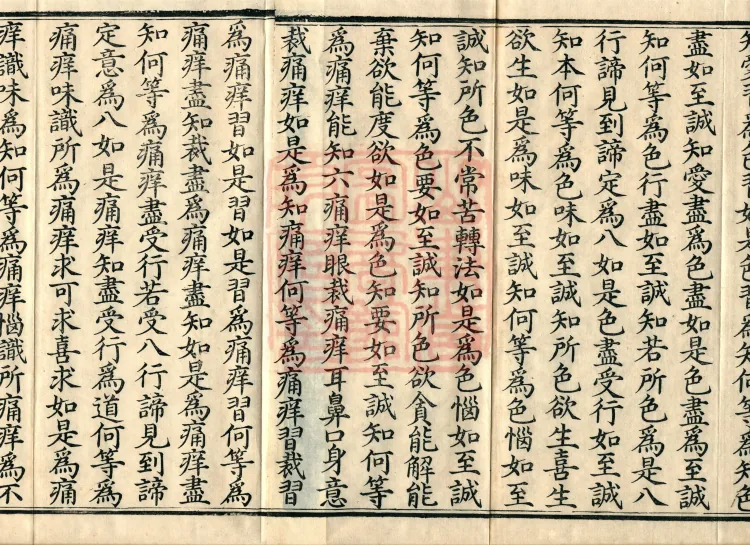 盡如至誠知愛盡爲色盡如是色盡爲至誠
知何等爲色行盡如至誠知若所色爲是八
行諦見到諦定爲八如是色盡受行如至誠
知本何等爲色味如至誠知所色欲生喜生
欲生如是爲味如至誠知何等爲色惱如至
誠知所色不常苦轉法如是爲色惱如至誠
知何等爲色要如至誠知所色欲貪能解能
棄欲能度欲如是爲色知要如至誠知何等
爲痛痒能知六痛痒眼裁痛痒耳鼻口身意
裁痛痒如是爲知痛痒何等爲痛痒習裁習
爲痛痒習如是習如是習爲痛痒習何等爲
痛痒盡知裁盡爲痛痒盡知如是爲痛痒盡
知何等爲痛痒盡受行若受八行諦見到諦
定意爲八如是痛痒知盡受行爲道何等爲
痛痒味識所爲痛痒求可求喜求如是爲痛
痒識味爲知何等爲痛痒惱識所痛痒爲不